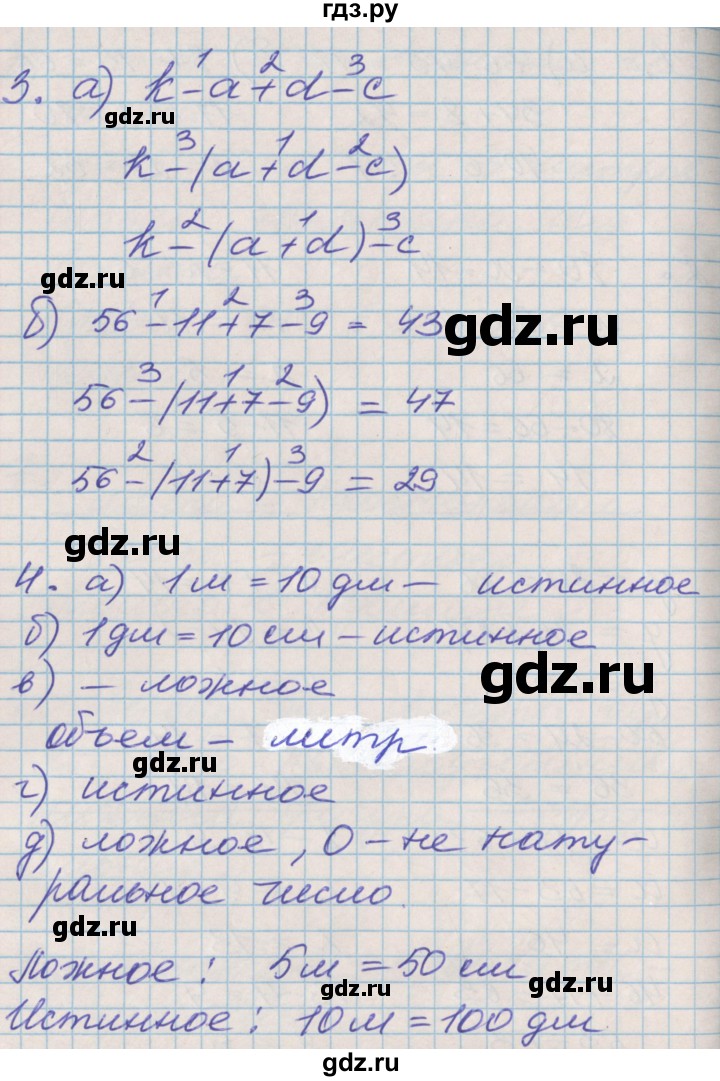 гдз.ру
1 2 3
3. а) k-a+d-c
gdz.ru
3 1 2
k-(a+d-c)
2 1 3
k-(a+d)-c
gdz.ru
1 2 3
б) 56-11+7-9 = 43
gdz.ru
3 1 2
56-(11+7-9) = 47
2 1 3
56-(11+7)-9 = 29
gdz.ru
4. а) 1м=10дм— истинное
б) 1дм=10см-истинное
в) — ложное
gdz.ru
объем — литр
gdz.ru
г) истинное
д) ложное, 0-не нату-
ральное число.
gdz.ru
Ложное: 5м=50см
gdz.ru
gdz.ru
Истинное: 10м=100дм
gdz.ru